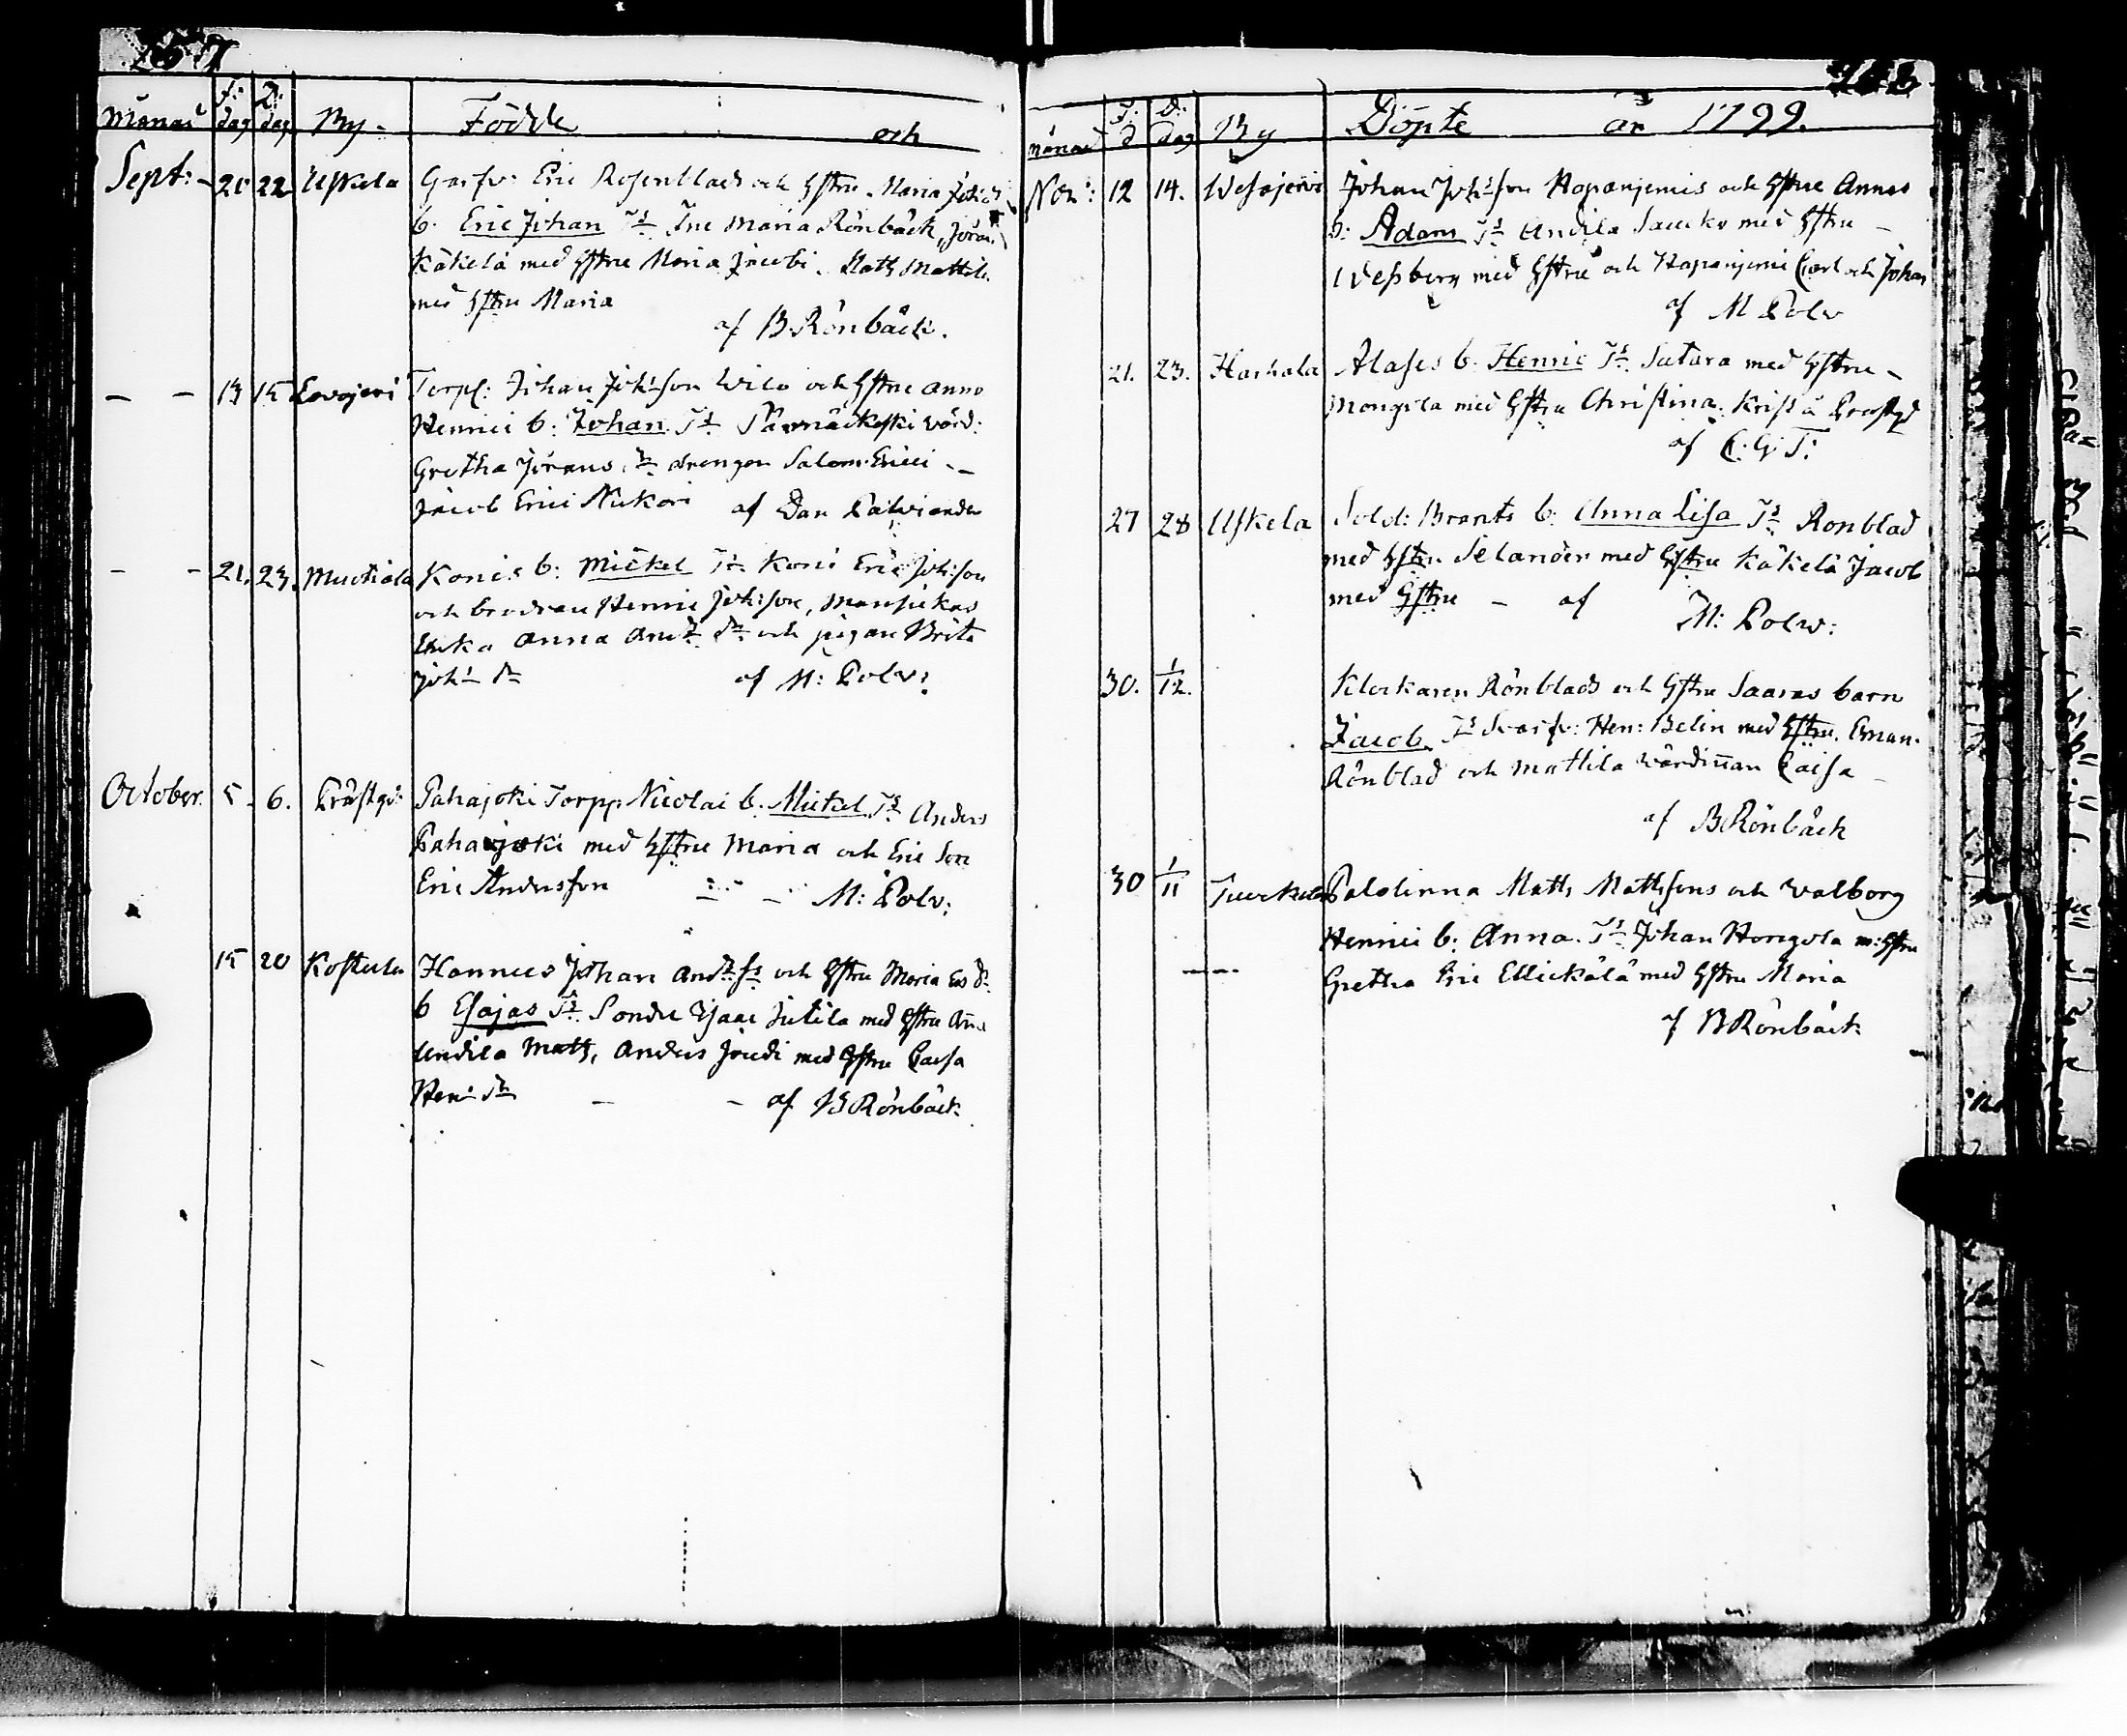 257
Månad f: dag D: dag By. Födde och
Sept: 21 22 Uskela Garfv: Eric Rosenblads och Hstru Maria Joh:
b. Eric Johan Ts Fru Maria Rönbäck, Jöran
Käkelä med Hstru Maria Jacobi. Matts Mattila
med Hstru Maria
af B Rönbäck.
— — 13 15 Lovojervi Torp: Johan Joh:son Wilo och Hstru Anna
Henrici b: Johan Ts wärd:
Gretha Jörans dr drengen Salom. Erici
Jacob Erici Nickori af Dan
- - 21. 23. Mustiala Konis b: Mickel Ts Koni Eric Joh:son
och brodren Henric Joh:son, Mansickas
Enka Anna And: dr och pigan Brita
Joh: dr af M: Polv:
October. 5. 6. Prästg: Pahajoki Torpp. Nicolai b. Mickel Ts Anders
Pahajoki med Hstru Maria och Eric Son
Eric Andersson — M: Polv:
15 20 Kostula Hannus Johan And: s: och Hstru Maria Es dr
b Esajas Ts Sonen Isaac Jutila med Hstru Aña
Undila Matts, Anders Joudi med Hstru Caisa
Hen: dr — — af B Rönbäck.
månad F: d D: dag By Döpte år 1799.
Nov: 12 14. Wesajervi Johan Joh:son Hapaniemis och Hstru Annas
b: Adam Ts Undila Saucko med Hstru —
Wessberg med Hstru och Hapaniemi Carl och Johan
af M Polv
21. 23. Harhala Alases b. Henric Ts Satara med Hstru —
Mongola med Hstru Christina. Krist å Prestgd
af C: G. T:
27 28 Uskela Sold: Brants b: Anna Lisa Ts Ronblad
med Hstru Selander med Hstru Käkelä Jacob
med Hstru — af M: Polv:
30. 1/12. Klockaren Rönblads och Hstru Saaras barn
Jacob Ts Hen: Belin med Hstru. Eman.
Rönblad och Mattila wärdiñan Caisa —
af B Rönbäck
30 1/11 Tuurkela Palolinna Matts Mattssons och Walborg
Henrici b: Anna. Ts Johan Hongola m: Hstru
Gretha Eric Ellickälä med Hstru Maria
af B Rönbäck